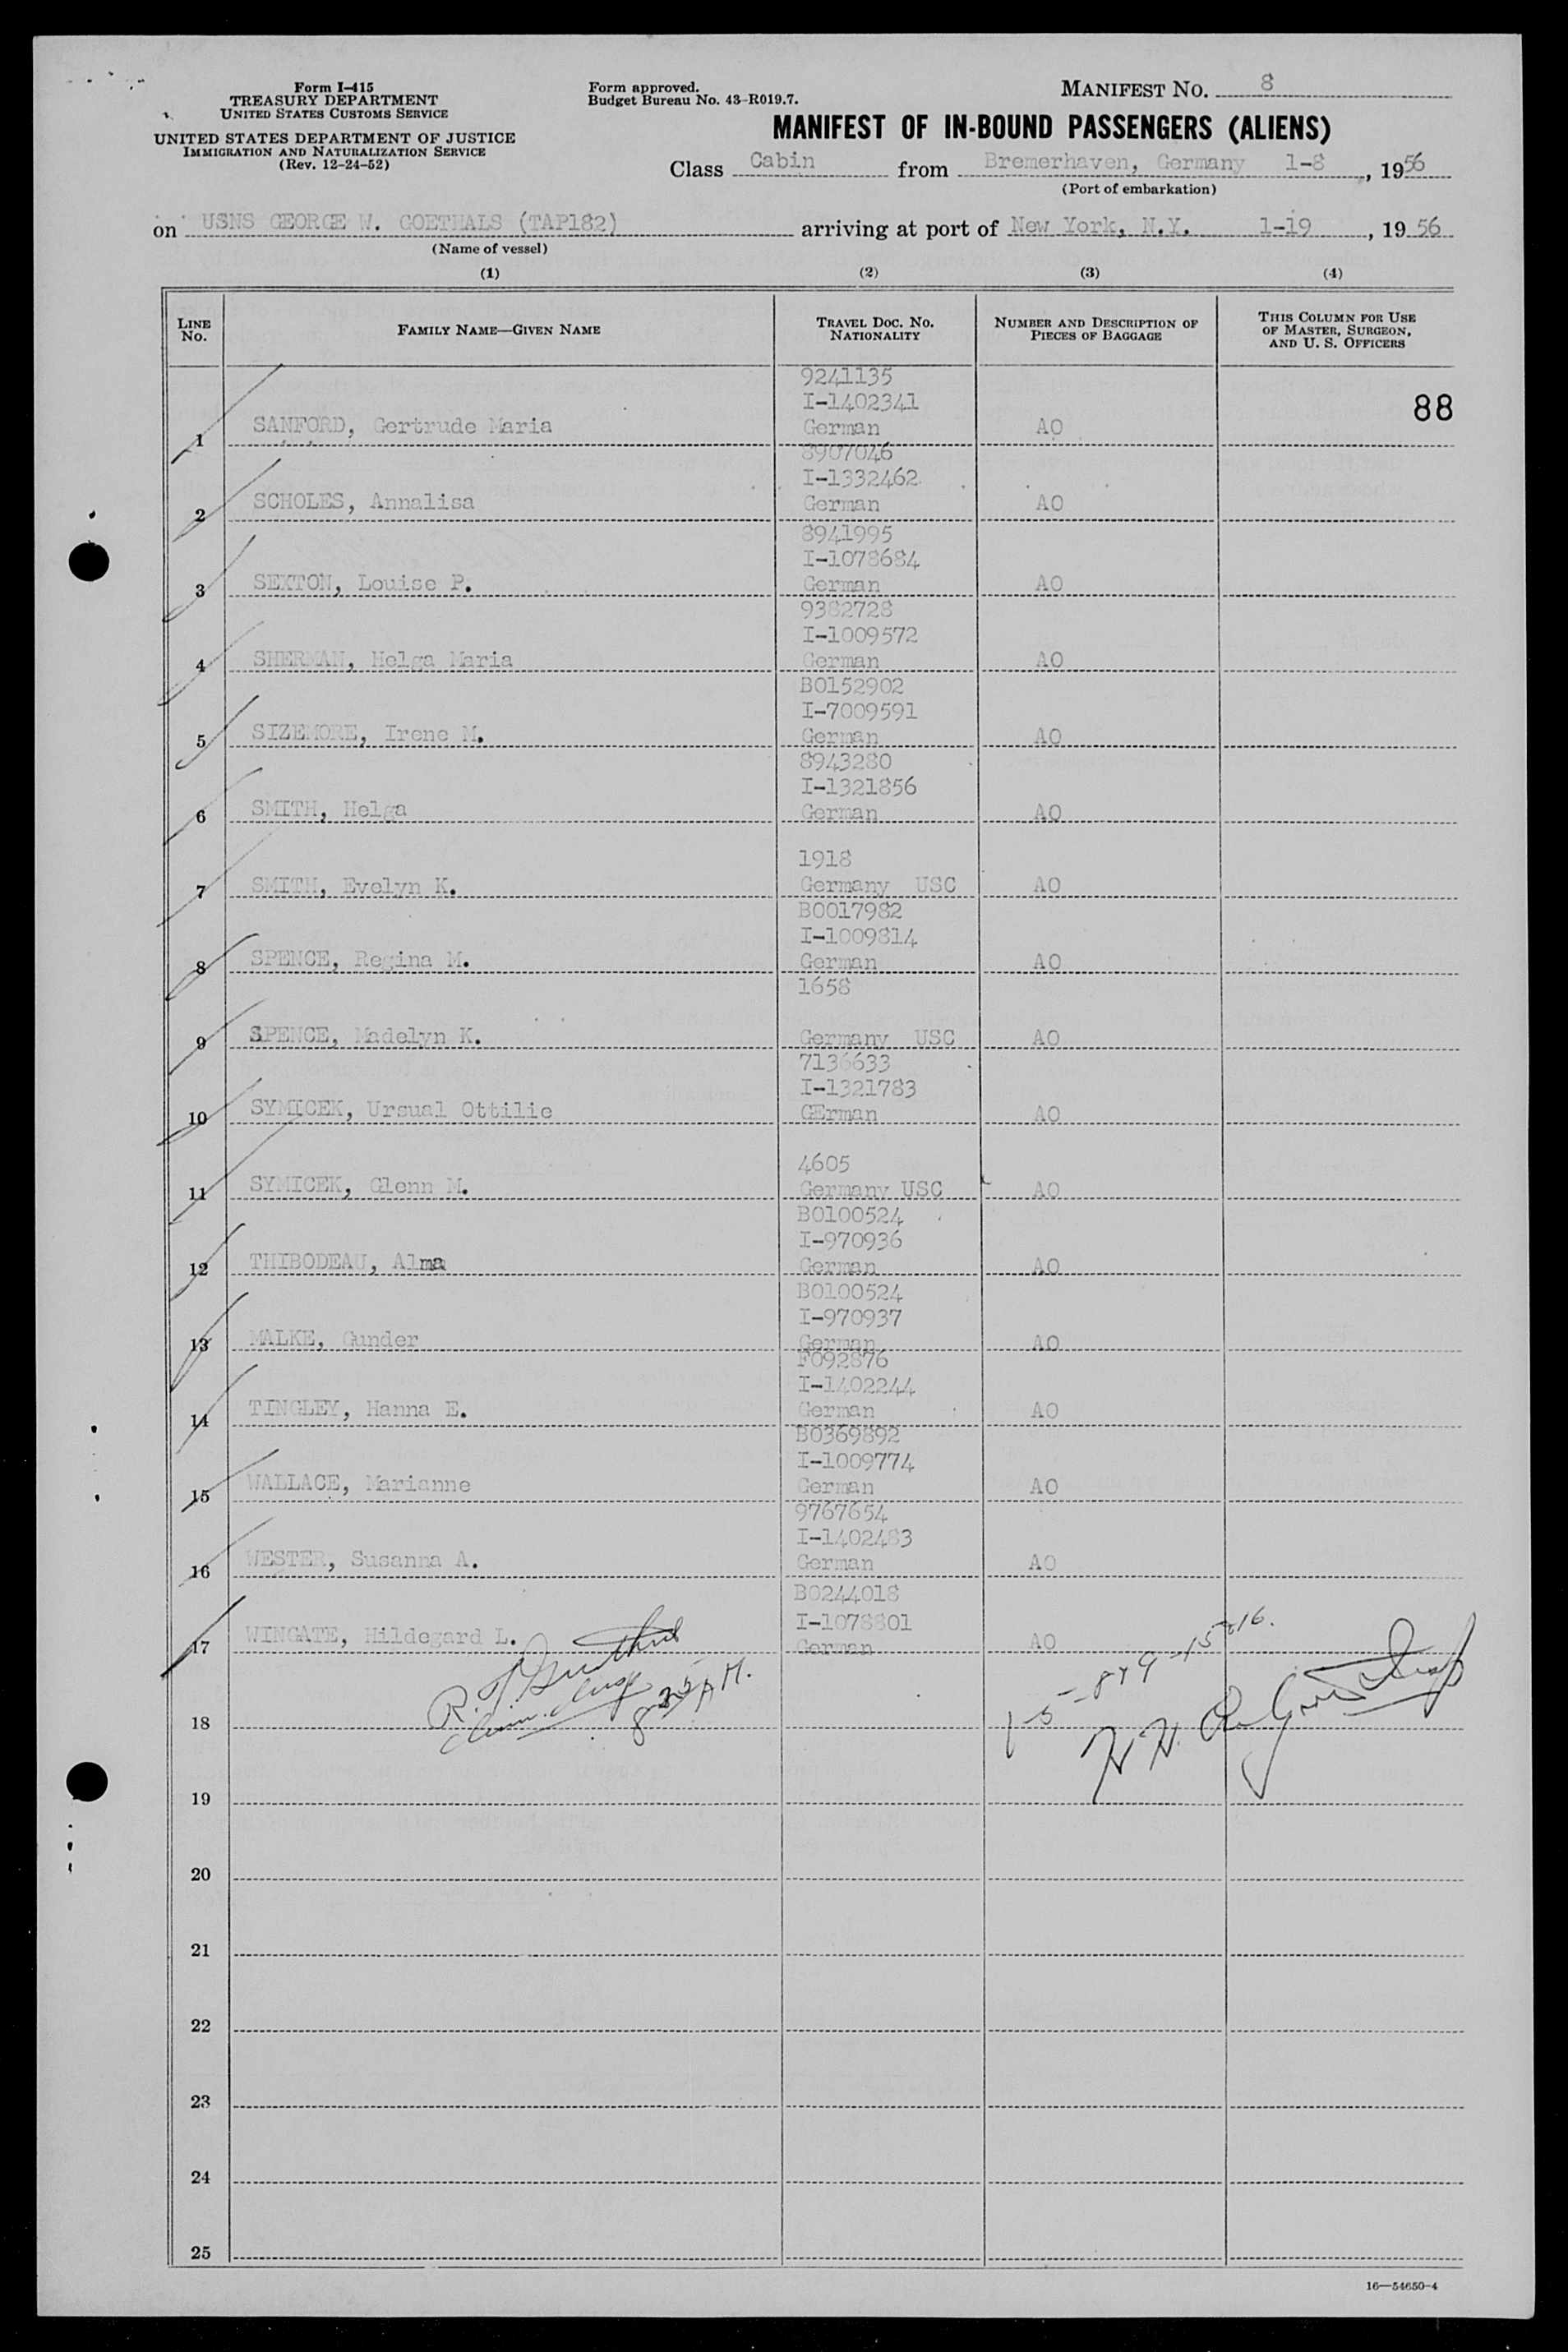 Form I-415
TREASURY DEPARTMENT
UNITED STATES CUSTOMS SERVICE
UNITED STATES DEPARTMENT OF JUSTICE
IMMIGRATION AND NATURALIZATION SERVICE
(Rev. 12-24-52)
Form approved.
Budget Bureau No. 43-R019.7.
MANIFEST NO. 8
MANIFEST OF IN-BOUND PASSENGERS (ALIENS)
Class Cabin from Bremerhaven, Germany 1-8, 1956
(Port of embarkation)
on USNS GEORGE W. GOETHALS (TAP182) arriving at port of New York, N.Y. 1-19, 1956
(Name of vessel)
(1) (2) (3) (4)
LINE No. FAMILY NAME—GIVEN NAME TRAVEL DOC. NO. NATIONALITY NUMBER AND DESCRIPTION OF PIECES OF BAGGAGE THIS COLUMN FOR USE OF MASTER, SURGEON, AND U. S. OFFICERS
88
9241135
I-1402341
1 SANFORD, Gertrude Maria German AO
8907046
I-1332462
2 SCHOLES, Annalisa German AO
8941995
I-1078684
3 SEXTON, Louise P. German AO
9382728
I-1009572
4 SHERMAN, Helga Maria German AO
B0152902
I-7009591
5 SIZEMORE, Irene M. German AO
8943280
I-1321856
6 SMITH, Helga German AO
1918
7 SMITH, Evelyn K. Germany USC AO
B0017982
I-1009814
8 SPENCE, Regina M. German AO
1658
9 SPENCE, Madelyn K. Germany USC AO
7136633
I-1321783
10 SYMICEK, Ursual Ottilie GErman AO
4605
11 SYMICEK, Glenn M. Germany USC AO
B0100524
I-970936
12 THIBODEAU, Alma German AO
B0100524
I-970937
13 MALKE, Gunder German AO
F092876
I-1402244
14 TINGLEY, Hanna E. German AO
B0369892
I-1009774
15 WALLACE, Marianne German AO
9767654
I-1402483
16 WESTER, Susanna A. German AO
B0244018
I-1078801
17 WINGATE, Hildegard L. German AO
18
19
20
21
22
23
24
25
16—54650-4